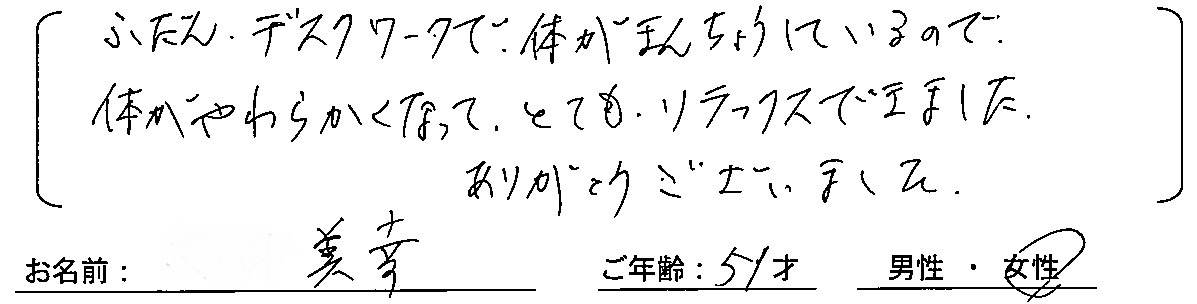 ふだん、デスクワークで、体がきんちょうしているので、
体がやわらかくなって、とても、リラックスできました。
ありがとうございました。
お名前： 美幸 ご年齢：51才 男性 ・ 女性